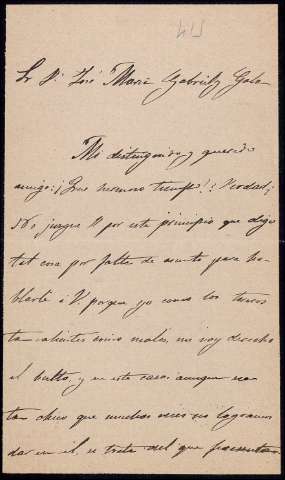 Sr. Dn. José María Gabriel y Galán
Mi distinguido y querido
amigo: ¡Que hermoso tiempo! ¿Verdad?
No juzgue V. por este principio que digo
tal cosa por falta de asunto para ha-
blarle á V. porque yo como los toros
tan valientes como malos, me voy derecho
al bulto, y en este caso aunque no
tan chico que muchas veces no logramos
dar en él, se trata del que presentan